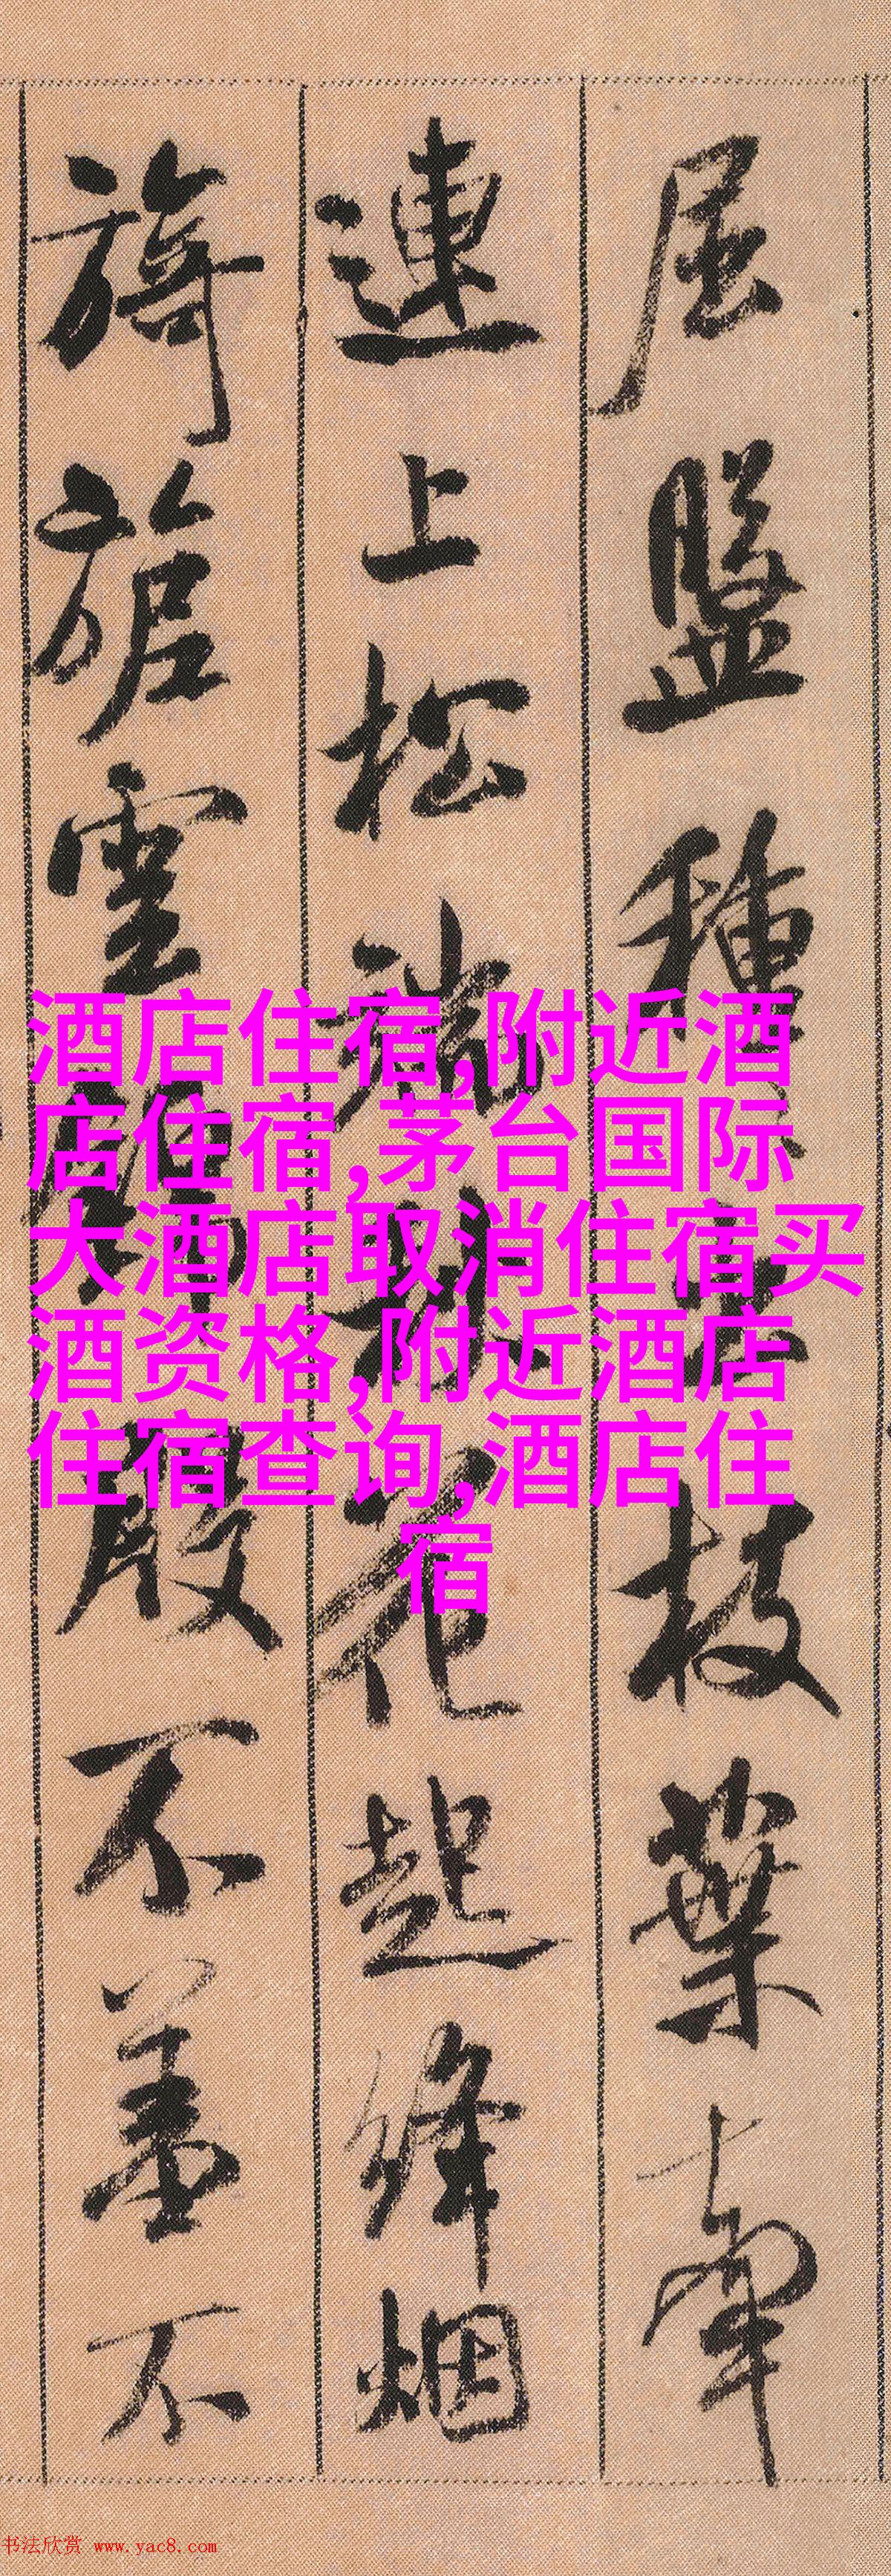 屈盤種種出枝葉牽
連上松端秋花起絳烟
旖旎雲錦殷不羞不
酒店住宿,附近酒
店住宿,茅台国际
大酒店取消住宿买
酒资格,附近酒店
住宿查询,酒店住
宿
书法欣赏 www.yac8.com